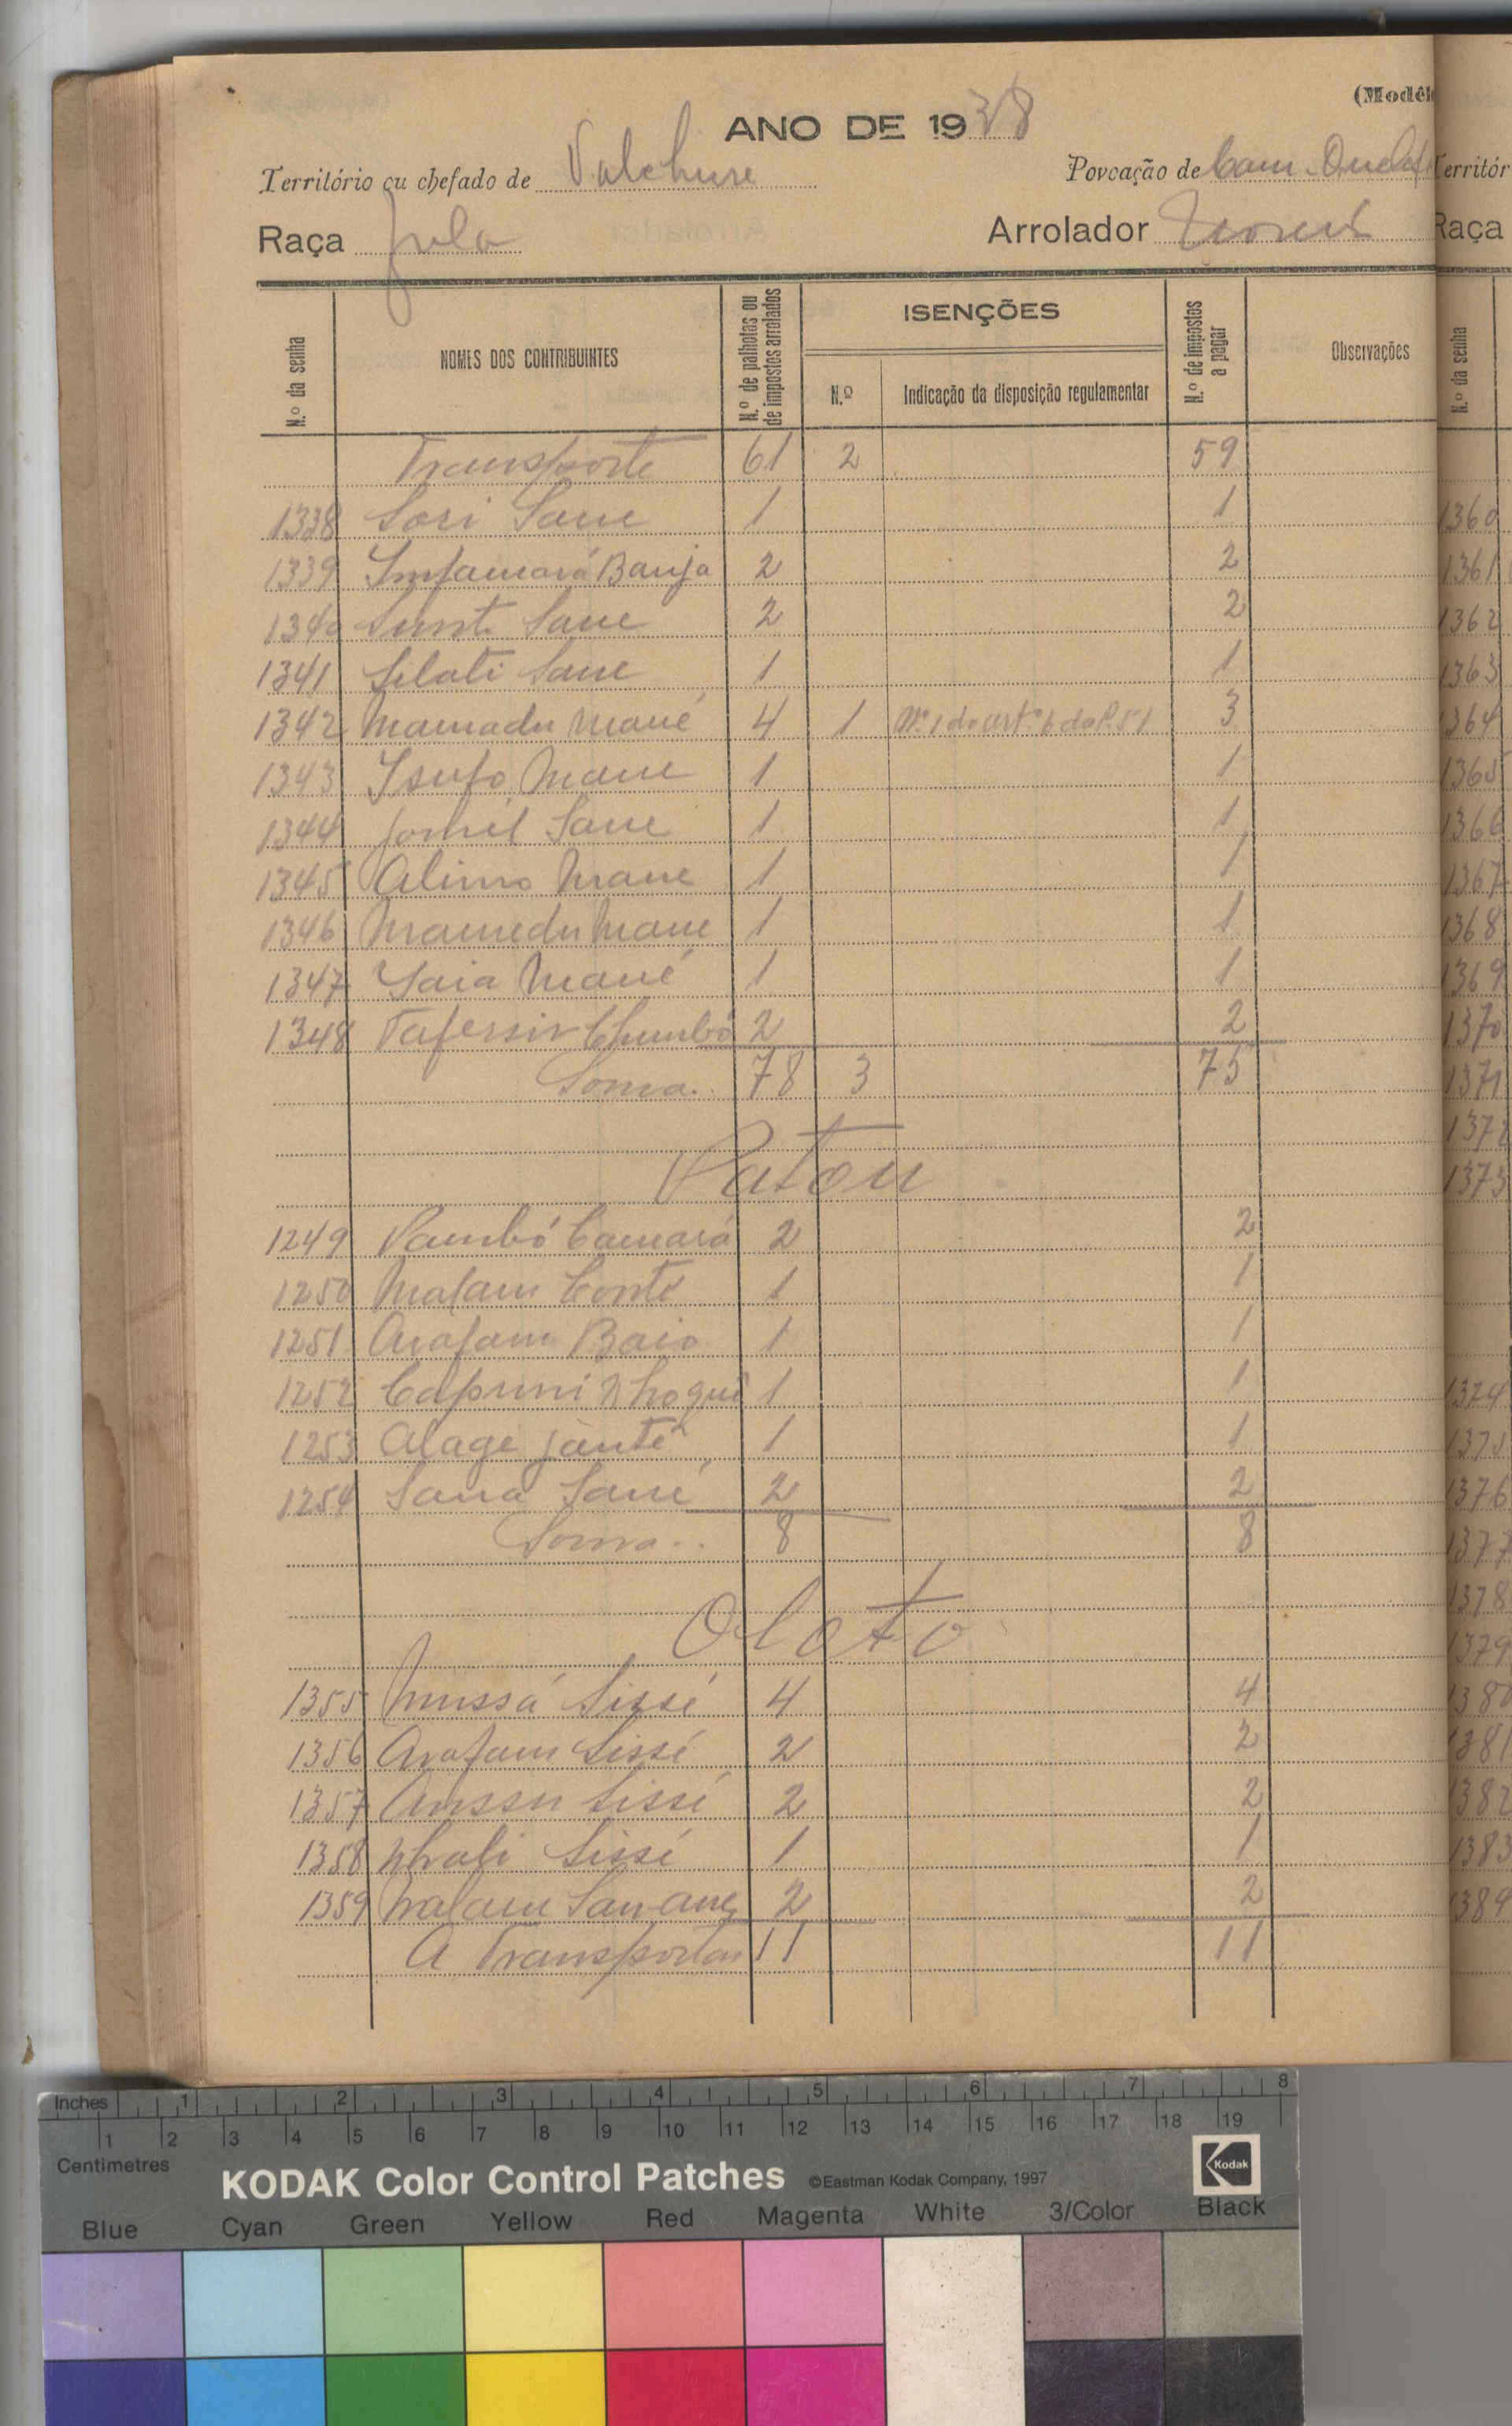 (Modêl
ANO DE 1938
Território ou chefado de Valchure Povoação de Cam
Raça Fula Arrolador
N.º da senha NOMES DOS CONTRIBUINTES N.º de palhotas ou de impostos arrolados ISENÇÕES N.º de impostos a pagar Observações
N.º Indicação da disposição regulamentar
Transporte 61 2 59
1338 Sori Sane 1 1
1339 Infamará Banja 2 2
1340 Sunt. Sane 2 2
1341 Silati Sane 1 1
1342 Mamadu Mané 4 1 Nº 1 do artº 6 do 3
1343 Isufo Mane 1 1
1344 Sane 1 1
1345 Alimo Mane 1 1
1346 Mamedu Mane 1 1
1347 Saia Mané 1 1
1348 Tafessir Chumbó 2 2
Soma.. 78 3 75
Patou
1249 Pambó Camará 2 2
1250 Malam Conté 1 1
1251 Arafam Baio 1 1
1252 1 1
1253 Alage janté 1 1
1254 Sana Sané 2 2
Soma.. 8 8
Oloto
1355 Mussá Sissé 4 4
1356 Arafam Sissé 2 2
1357 Anssu Sissé 2 2
1358 Nhali Sissé 1 1
1359 Malam 2 2
A Transportar 11 11
Territór
Raça
N.º da senha
1360
1361
1362
1363
1364
1365
1366
1367
1368
1369
1370
1371
1372
1373
1374
1375
1376
1377
1378
1379
1380
1381
1382
1383
1384
Inches 1 2 3 4 5 6 7 8
1 2 3 4 5 6 7 8 9 10 11 12 13 14 15 16 17 18 19
Centimetres
KODAK Color Control Patches ©Eastman Kodak Company, 1997 Kodak
Blue Cyan Green Yellow Red Magenta White 3/Color Black